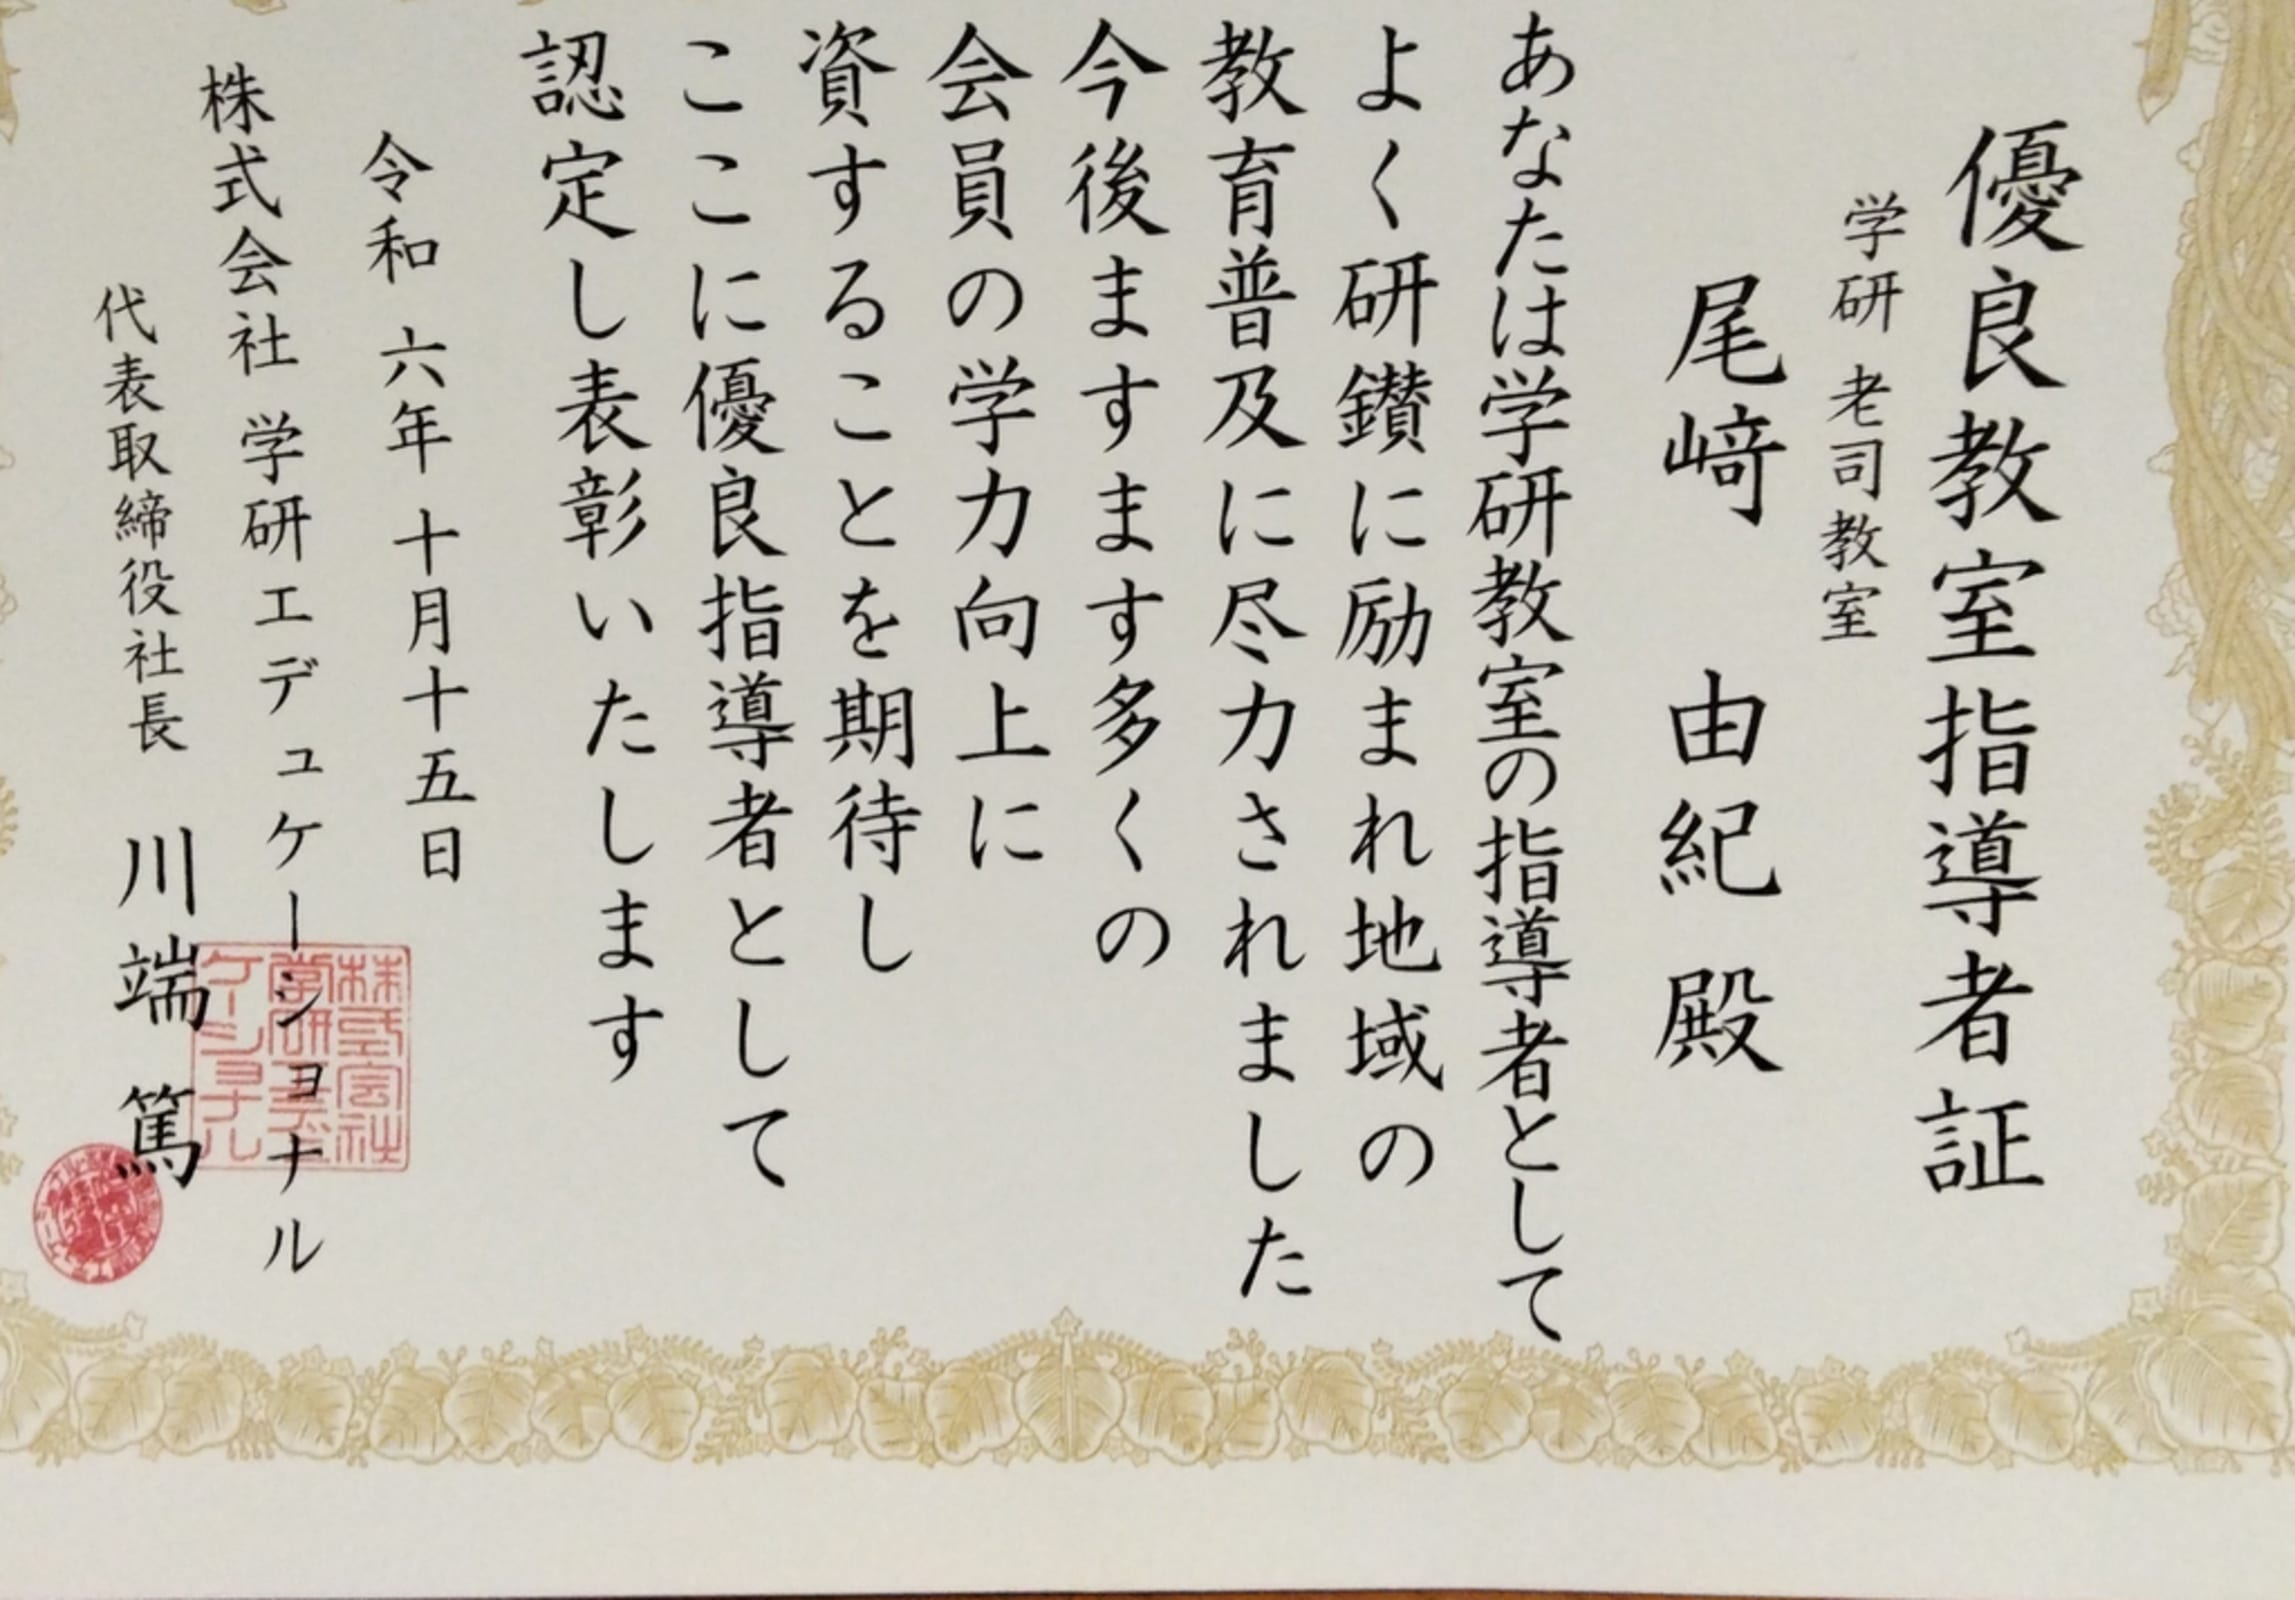 優良教室指導者証
学研 老司教室
尾﨑 由紀 殿
あなたは学研教室の指導者として
よく研鑚に励まれ地域の
教育普及に尽力されました
今後ますます多くの
会員の学力向上に
資することを期待し
ここに優良指導者として
認定し表彰いたします
令和 六年 十月十五日
株式会社 学研エデュケーショナル
代表取締役社長 川端 篤
株式会社
学研エデュ
ケーショナル